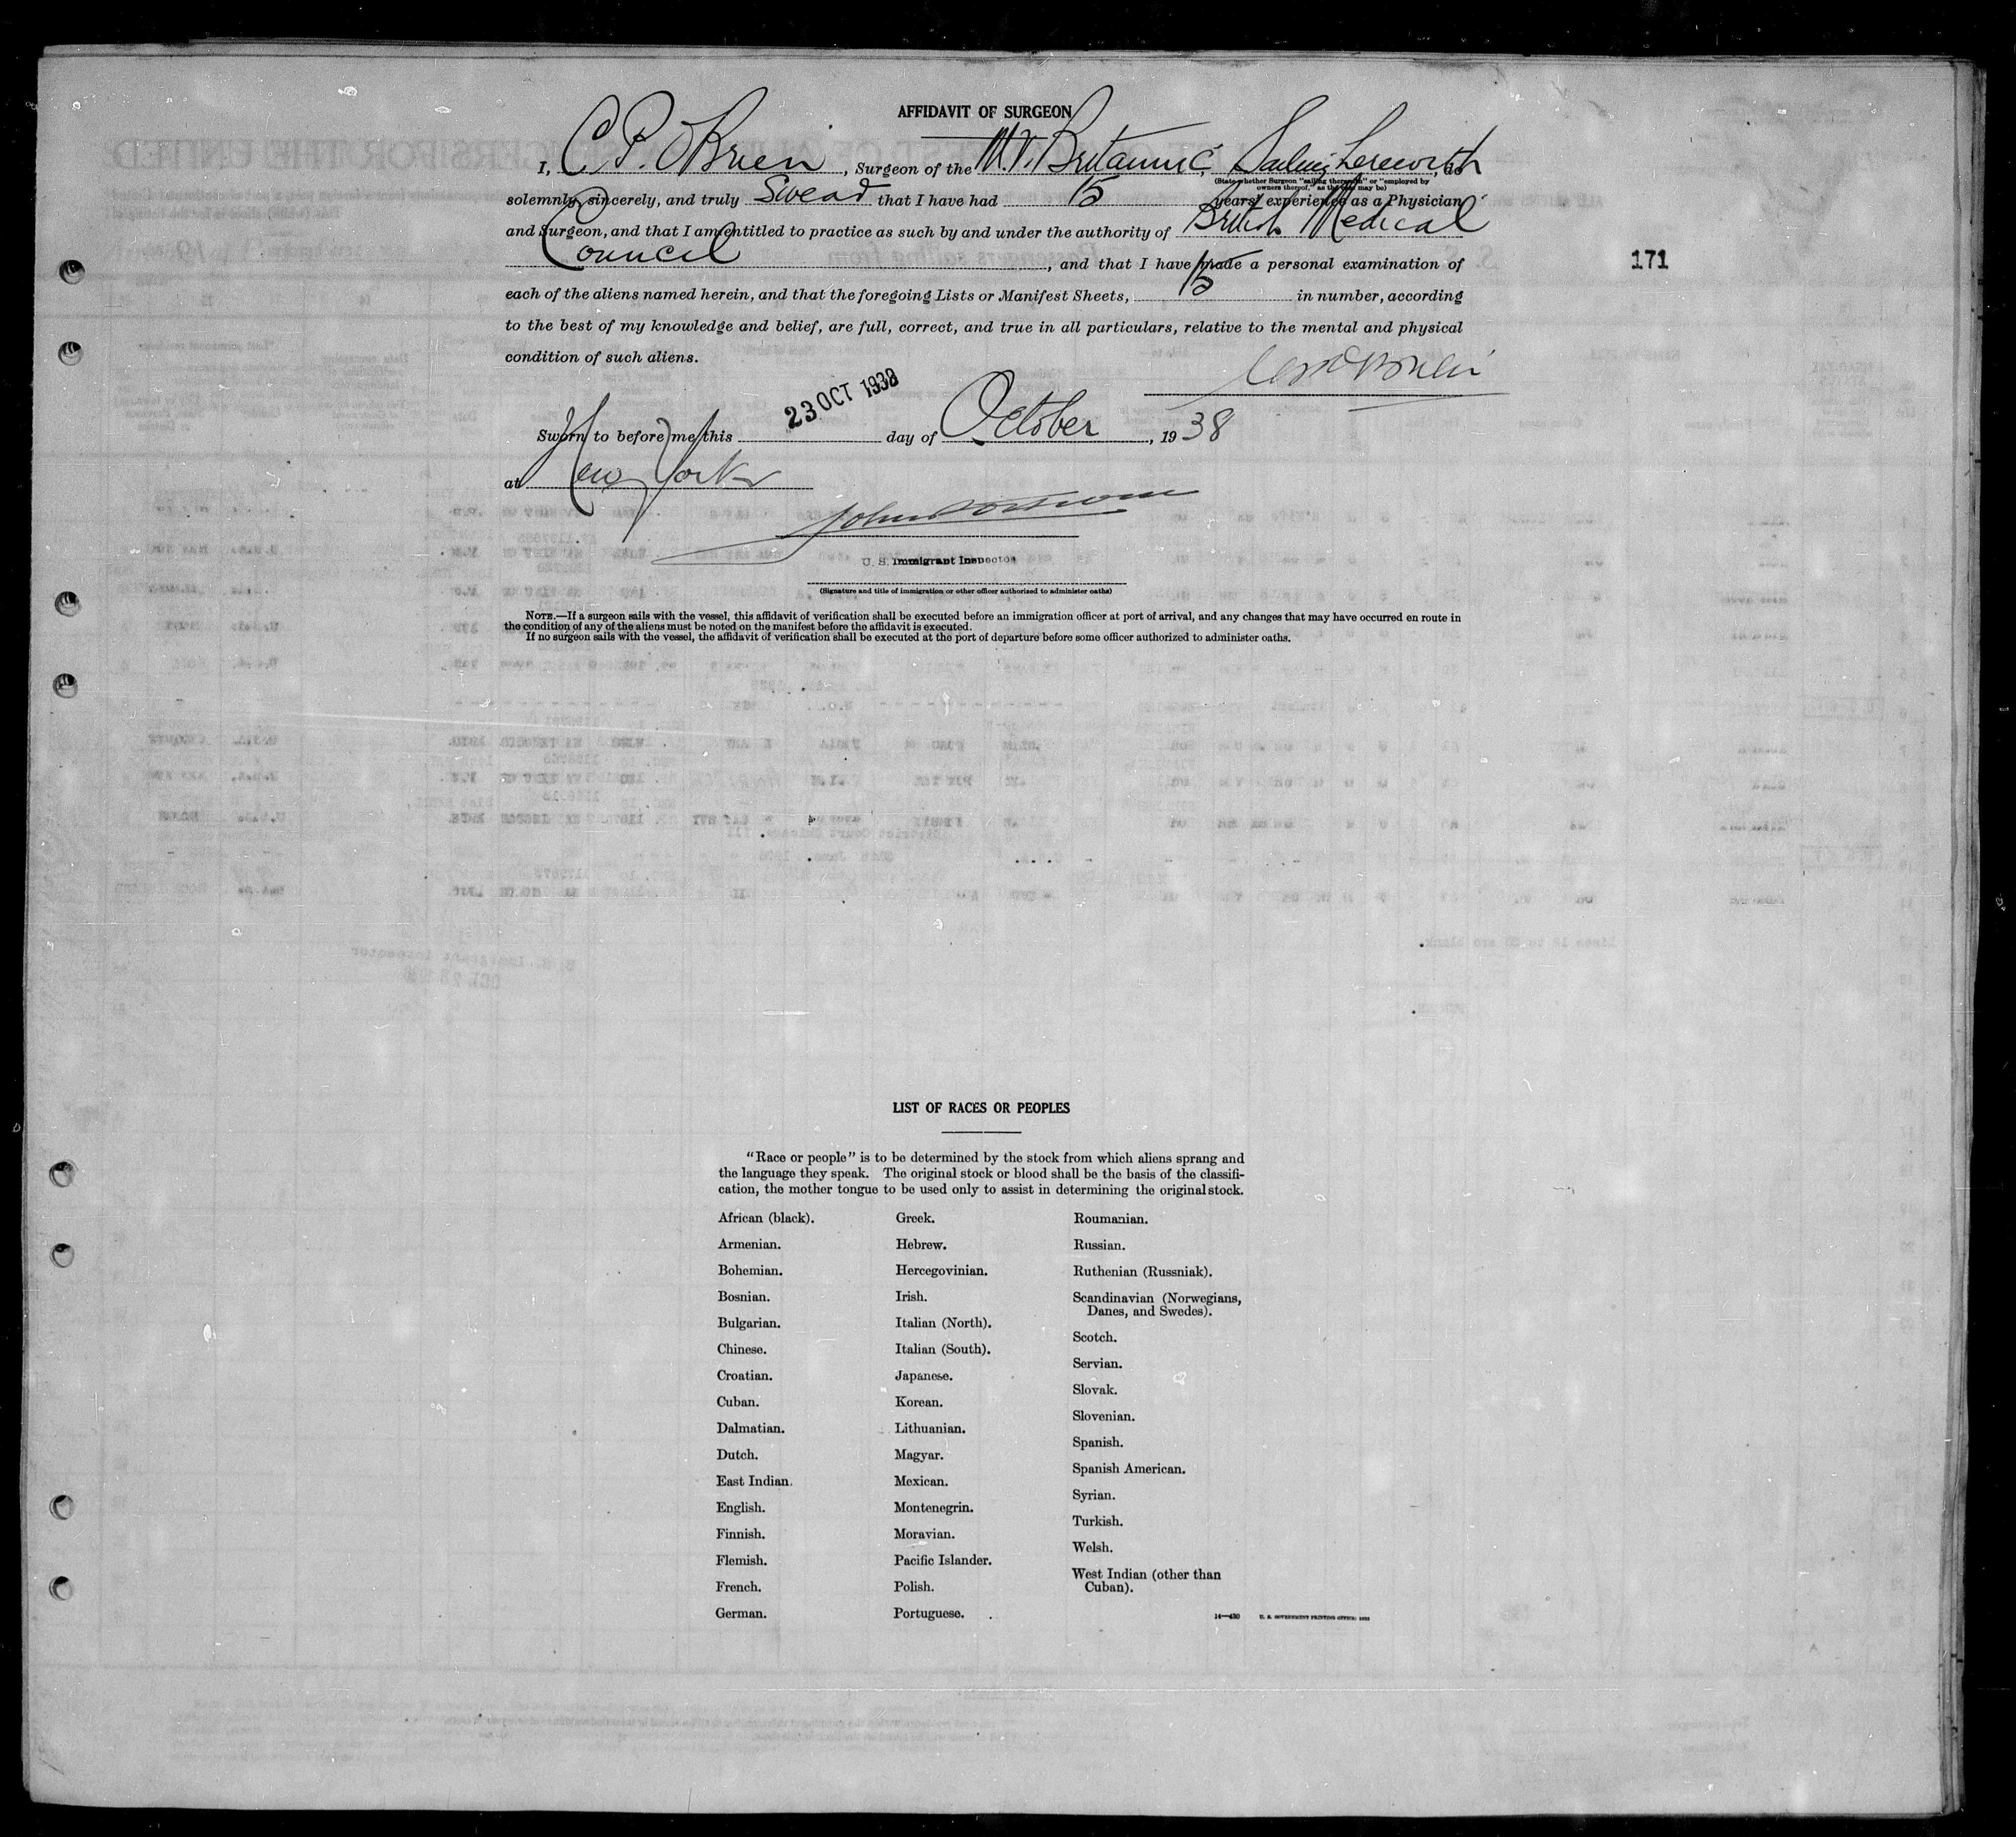 AFFIDAVIT OF SURGEON
I, C P. O'Brien, Surgeon of the M.V. Britannic, Sailing therewith, do
(State whether Surgeon "sailing therewith" or "employed by
owners thereof," as the case may be)
solemnly, sincerely, and truly Swear that I have had 15 years' experience as a Physician
and Surgeon, and that I am entitled to practice as such by and under the authority of British Medical
Council, and that I have made a personal examination of
171
each of the aliens named herein, and that the foregoing Lists or Manifest Sheets, 15 in number, according
to the best of my knowledge and belief, are full, correct, and true in all particulars, relative to the mental and physical
condition of such aliens.
Sworn to before me this 23 OCT 1938 day of October, 19 38
at New York
U. S. Immigrant Inspector
(Signature and title of immigration or other officer authorized to administer oaths)
NOTE.—If a surgeon sails with the vessel, this affidavit of verification shall be executed before an immigration officer at port of arrival, and any changes that may have occurred en route in
the condition of any of the aliens must be noted on the manifest before the affidavit is executed.
If no surgeon sails with the vessel, the affidavit of verification shall be executed at the port of departure before some officer authorized to administer oaths.
LIST OF RACES OR PEOPLES
"Race or people" is to be determined by the stock from which aliens sprang and
the language they speak. The original stock or blood shall be the basis of the classifi-
cation, the mother tongue to be used only to assist in determining the original stock.
African (black).
Armenian.
Bohemian.
Bosnian.
Bulgarian.
Chinese.
Croatian.
Cuban.
Dalmatian.
Dutch.
East Indian.
English.
Finnish.
Flemish.
French.
German.
Greek.
Hebrew.
Hercegovinian.
Irish.
Italian (North).
Italian (South).
Japanese.
Korean.
Lithuanian.
Magyar.
Mexican.
Montenegrin.
Moravian.
Pacific Islander.
Polish.
Portuguese.
Roumanian.
Russian.
Ruthenian (Russniak).
Scandinavian (Norwegians,
Danes, and Swedes).
Scotch.
Servian.
Slovak.
Slovenian.
Spanish.
Spanish American.
Syrian.
Turkish.
Welsh.
West Indian (other than
Cuban).
14—430 U. S. GOVERNMENT PRINTING OFFICE: